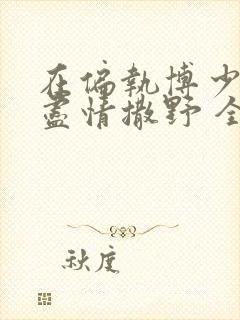 在偏執博少
盡情撒野 全
秋度